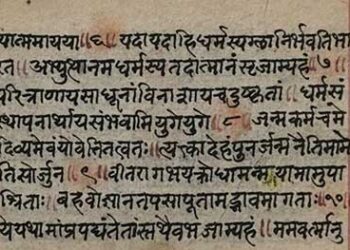 यात्ममायया ॥६॥ यदायदाहिधर्मस्यग्लानिर्भवतिभा
रत ॥ अभ्युत्थानमधर्मस्यतदात्मानंसृजाम्यहं ॥७॥
परित्राणायसाधूनांविनाशायचदुष्कृतां ॥ धर्मसं
स्थापनार्थायसंभवामियुगेयुगे ॥८॥ जन्मकर्मचमे
दिव्यमेवंयोवेत्तितत्वतः ॥ त्यक्त्वादेहंपुनर्जन्मनैतिमामे
तिसोर्जुन ॥९॥ वीतरागभयक्रोधामन्मयामामुपा
श्रिताः ॥ बहवोज्ञानतपसापूतामद्भावमागताः ॥१०॥
येयथामांप्रपद्यंतेतांस्तथैवभजाम्यहं ॥ ममवर्त्मानु